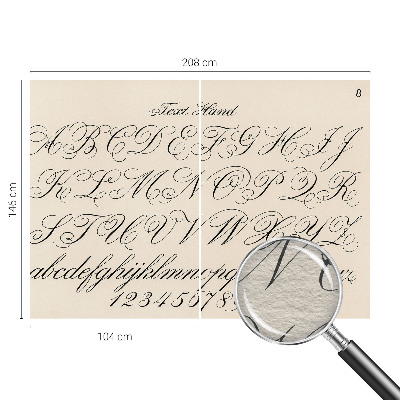 208 cm
8
Text Hand
A B C D E F G H I J
146 cm
K L M N O P Q R
S T U V W X Y Z
abcdefghijklmnopq
1 2 3 4 5 6 7 8 9
104 cm